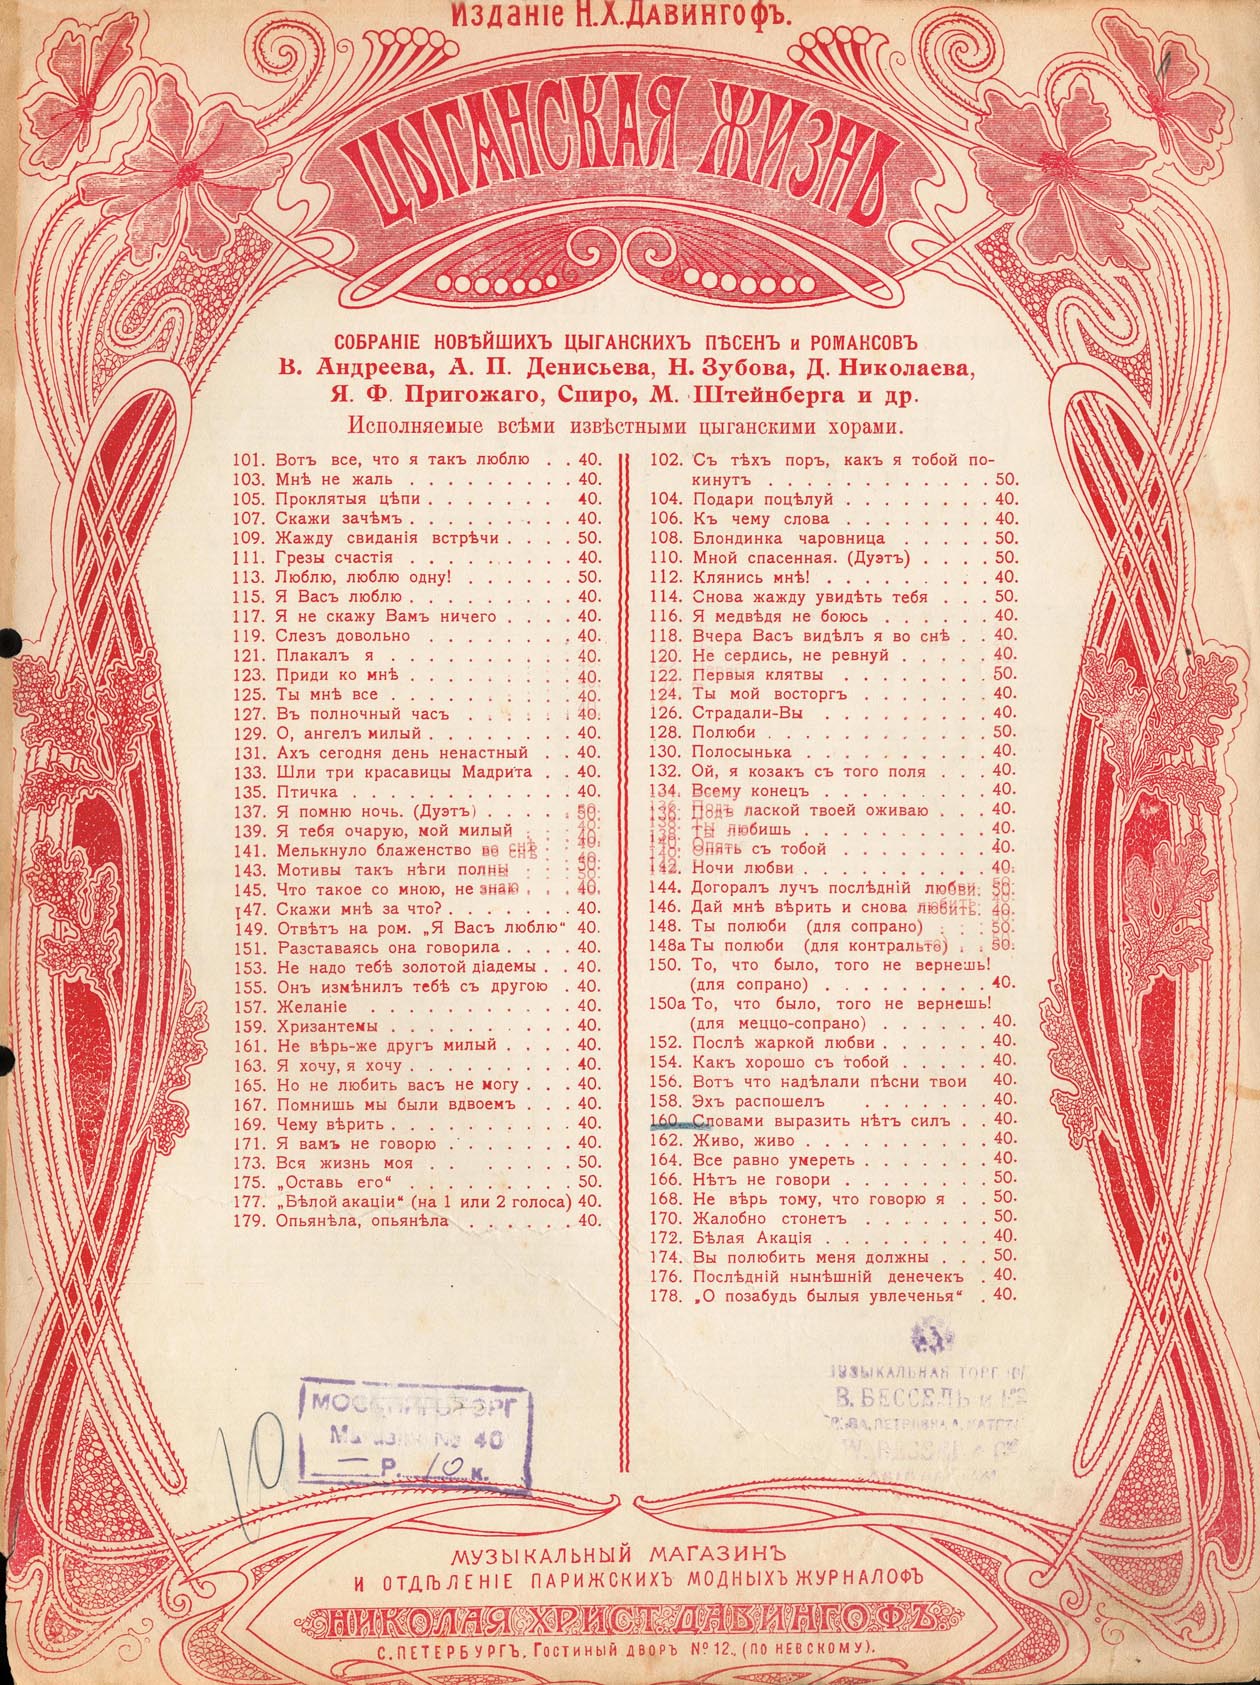 Изданіе Н.Х.Давингофъ.
ЦЫГАНСКАЯ ЖИЗНЬ
СОБРАНІЕ НОВѢЙШИХЪ ЦЫГАНСКИХЪ ПѢСЕНЪ и РОМАНСОВЪ
В. Андреева, А. П. Денисьева, Н. Зубова, Д. Николаева,
Я. Ф. Пригожаго, Спиро, М. Штейнберга и др.
Исполняемые всѣми извѣстными цыганскими хорами.
101. Вотъ все, что я такъ люблю . . 40.
103. Мнѣ не жаль . . . . . . . . . . 40.
105. Проклятыя цѣпи . . . . . . . . . 40.
107. Скажи зачѣмъ . . . . . . . . . . 40.
109. Жажду свиданія встрѣчи . . . . 50.
111. Грезы счастія . . . . . . . . . . 40.
113. Люблю, люблю одну! . . . . . . 50.
115. Я Васъ люблю . . . . . . . . . . 40.
117. Я не скажу Вамъ ничего . . . . 40.
119. Слезъ довольно . . . . . . . . . 40.
121. Плакалъ я . . . . . . . . . . . 40.
123. Приди ко мнѣ . . . . . . . . . . 40.
125. Ты мнѣ все . . . . . . . . . . . 40.
127. Въ полночный часъ . . . . . . . 40.
129. О, ангелъ милый . . . . . . . . 40.
131. Ахъ сегодня день ненастный . . 40.
133. Шли три красавицы Мадрита . . 40.
135. Птичка . . . . . . . . . . . . . 40.
137. Я помню ночь. (Дуэтъ) . . . . . 50.
139. Я тебя очарую, мой милый . . . 40.
141. Мелькнуло блаженство во снѣ . . 40.
143. Мотивы такъ нѣги полны . . . 50.
145. Что такое со мною, не знаю . . . 40.
147. Скажи мнѣ за что? . . . . . . . 40.
149. Отвѣтъ на ром. „Я Васъ люблю“ 40.
151. Разставаясь она говорила . . . . 40.
153. Не надо тебѣ золотой діадемы . . 40.
155. Онъ измѣнилъ тебѣ съ другою . 40.
157. Желаніе . . . . . . . . . . . . 40.
159. Хризантемы . . . . . . . . . . . 40.
161. Не вѣрь-же другъ милый . . . . 40.
163. Я хочу, я хочу . . . . . . . . . 40.
165. Но не любить васъ не могу . . . 40.
167. Помнишь мы были вдвоемъ . . . 40.
169. Чему вѣрить . . . . . . . . . . . 40.
171. Я вамъ не говорю . . . . . . . . 40.
173. Вся жизнь моя . . . . . . . . . 50.
175. „Оставь его“ . . . . . . . . . . 50.
177. „Бѣлой акаціи“ (на 1 или 2 голоса) 40.
179. Опьянѣла, опьянѣла . . . . . . 40.
102. Съ тѣхъ поръ, какъ я тобой по-
кинутъ . . . . . . . . . . . . 50.
104. Подари поцѣлуй . . . . . . . . 40.
106. Къ чему слова . . . . . . . . . 40.
108. Блондинка чаровница . . . . . 50.
110. Мной спасенная. (Дуэтъ) . . . . 50.
112. Клянись мнѣ! . . . . . . . . . . 40.
114. Снова жажду увидѣть тебя . . . 50.
116. Я медвѣдя не боюсь . . . . . . 40.
118. Вчера Васъ видѣлъ я во снѣ . . 40.
120. Не сердись, не ревнуй . . . . . 40.
122. Первыя клятвы . . . . . . . . . 50.
124. Ты мой восторгъ . . . . . . . . 40.
126. Страдали-Вы . . . . . . . . . . 40.
128. Полюби . . . . . . . . . . . . . 50.
130. Полосынька . . . . . . . . . . . 40.
132. Ой, я козакъ съ того поля . . . 40.
134. Всему конецъ . . . . . . . . . . 40.
136. Подъ лаской твоей оживаю . . . 40.
138. Ты любишь . . . . . . . . . . . 40.
140. Опять съ тобой . . . . . . . . . 40.
142. Ночи любви . . . . . . . . . . . 40.
144. Догоралъ лучъ послѣдній любви. 50.
146. Дай мнѣ вѣрить и снова любить. 40.
148. Ты полюби (для сопрано) . . . 50.
148а Ты полюби (для контральто) . . 50.
150. То, что было, того не вернешь!
(для сопрано) . . . . . . . . . 40.
150а То, что было, того не вернешь!
(для меццо-сопрано) . . . . . . 40.
152. Послѣ жаркой любви . . . . . . 40.
154. Какъ хорошо съ тобой . . . . . 40.
156. Вотъ что надѣлали пѣсни твои 40.
158. Эхъ распошелъ . . . . . . . 40.
160. Словами выразить нѣтъ силъ . . 40.
162. Живо, живо . . . . . . . . . . . 40.
164. Все равно умереть . . . . . . . 40.
166. Нѣтъ не говори . . . . . . . . . 50.
168. Не вѣрь тому, что говорю я . . 50.
170. Жалобно стонетъ . . . . . . . 50.
172. Бѣлая Акація . . . . . . . . . . 40.
174. Вы полюбить меня должны . . . 50.
176. Послѣдній нынѣшній денечекъ . 40.
178. „О позабудь былыя увлеченья“ . 40.
В. БЕССЕЛЬ и Кº
№ 40
— Р. 10 к.
10
МУЗЫКАЛЬНЫЙ МАГАЗИНЪ
И ОТДѢЛЕНІЕ ПАРИЖСКИХЪ МОДНЫХЪ ЖУРНАЛОФЪ
НИКОЛАЯ ХРИСТ. ДАВИНГОФЪ.
С. ПЕТЕРБУРГЪ, Гостиный дворъ № 12., (по Невскому).